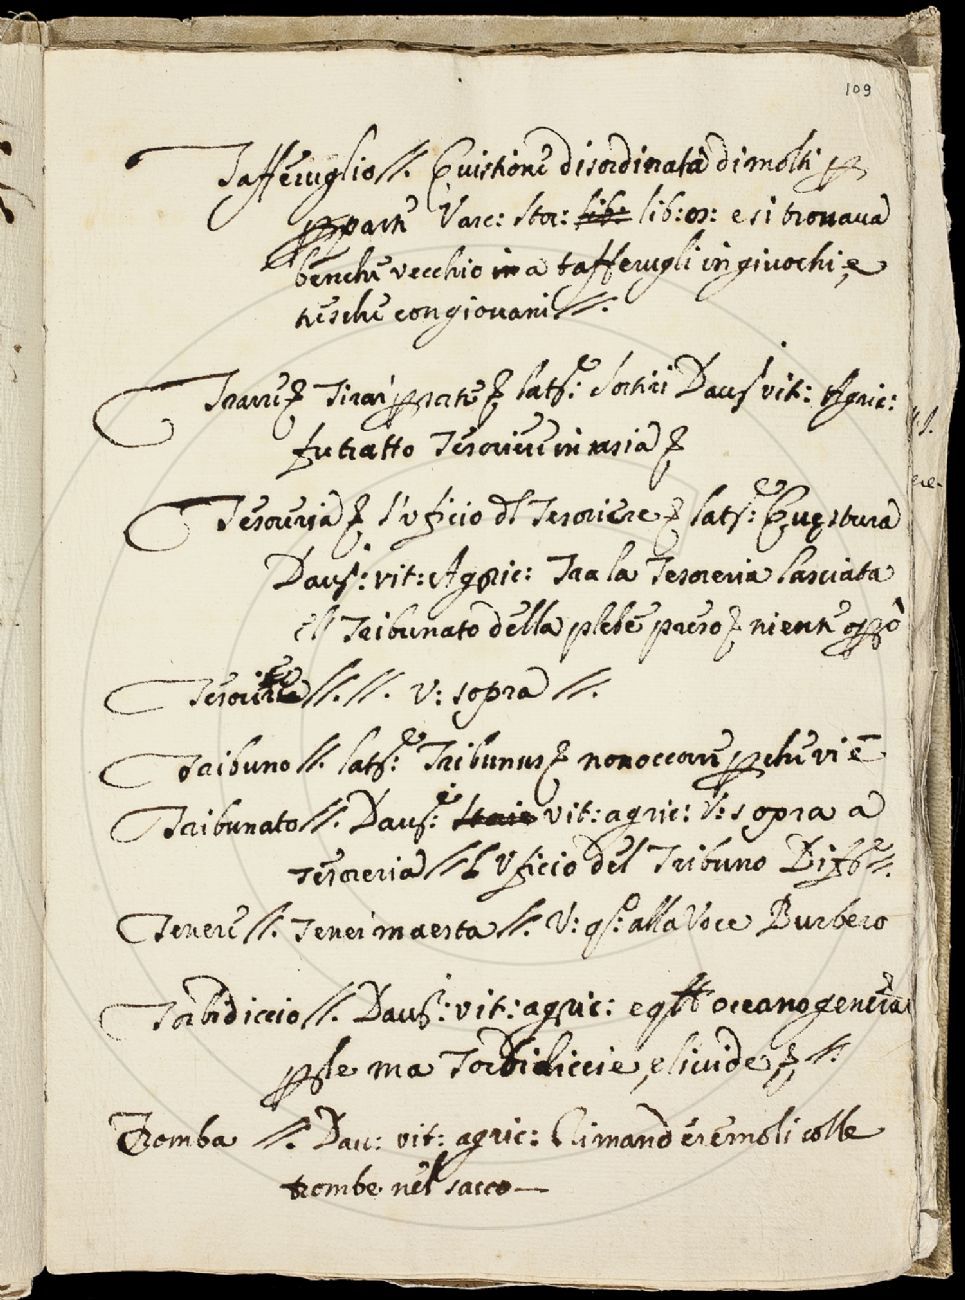 109
Tafferuglio//. Quistione disordinata di molti
parte Varc: Stor: lib: lib: 02: e si trovava
benche vecchio in a tafferugli in giuochi, e
tresche con giovani//.
Trarre Tirar sorte lat: Sortiri Dav: vit: Agric:
fu tratto Tesoriere in Asia
Tesoreria l'uficio dl Tesoriere lat: Questura
Dav: vit: Agric: Tra la Tesoreria lasciata
il Tribunato della plebe preso niente
Tesoriere//.//. V: sopra//.
Tribuno//. lat: Tribunus non occorre vi è
Tribunato//. Dav: vit: agric: V: sopra a
Tesoreria//L'Uficio del Tribuno
Tenere//. Tener maesta//. V: alla Voce Burbero
Torbidiccio//. Dav: vit: agric: e oceano genera
ma Torbidiccie, e livide, //.
Tromba //. Dav: vit: agric: Rimanderemoli colle
trombe nel sacco—